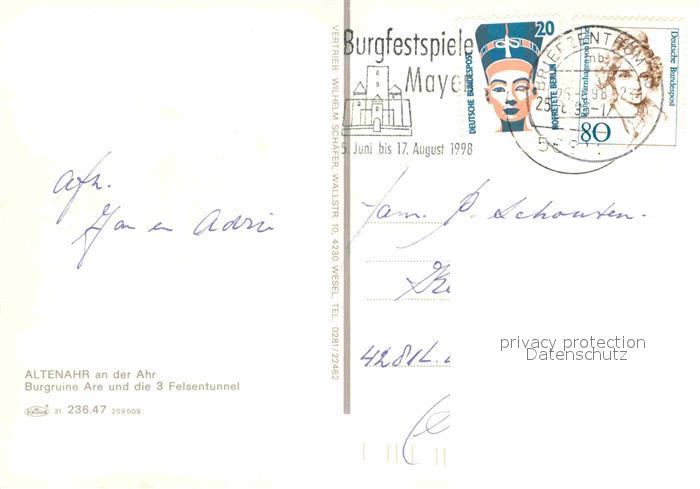 Burgfestspiele
Maye
5. Juni bis 17. August 1998
20
DEUTSCHE BUNDESPOST
NOFRETETE BERLIN
80
Deutsche Bundespost
Rahel Varnhagen von Ense
BRIEFZENTRUM
VERTRIEB WILHELM SCHÄFER, WALLSTR. 10, 4230 WESEL, TEL. 0281/22462
afz.
Jan en Adrie
Fam. P. Schouten.
privacy protection
Datenschutz
ALTENAHR an der Ahr
Burgruine Are und die 3 Felsentunnel
31 236.47 259509